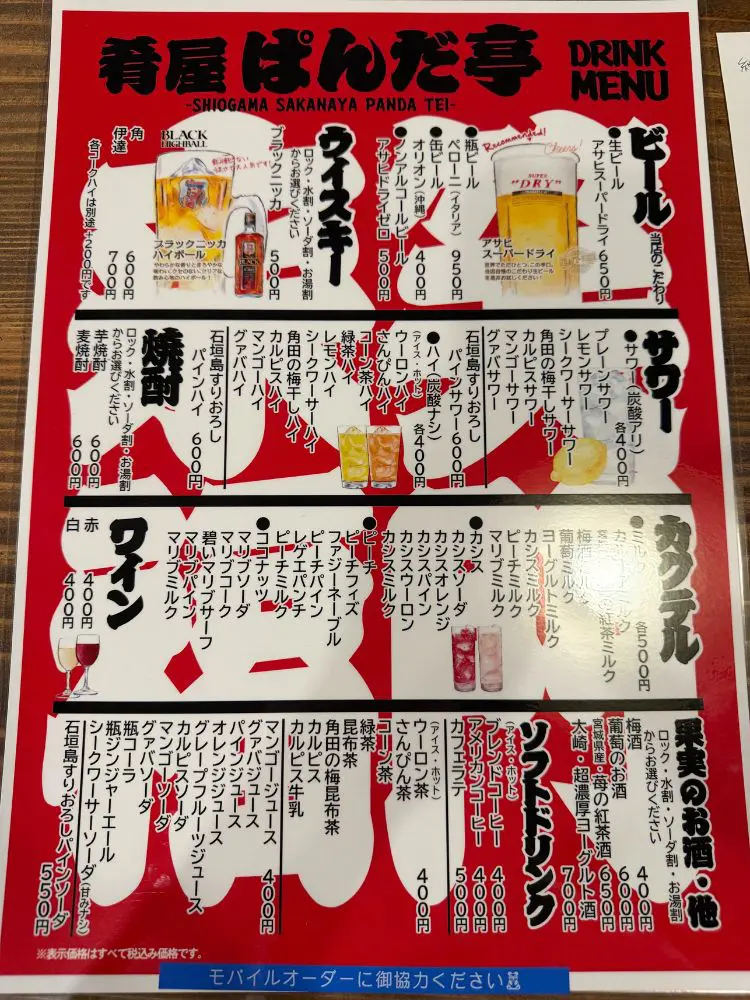 肴屋 ぱんだ亭
DRINK MENU
-SHIOGAMA SAKANAYA PANDA TEI-
ビール
当店のこだわり
●生ビール
アサヒスーパードライ 650円
Recommended!
Cheers!
SUPER
"DRY"
アサヒ
スーパードライ
●瓶ビール
ペローニ(イタリア) 950円
●缶ビール
オリオン(沖縄) 400円
●ノンアルコールビール
アサヒドライゼロ 500円
ウイスキー
ロック・水割・ソーダ割・お湯割
からお選びください
ブラックニッカ 500円
BLACK
HIGHBALL
ブラックニッカ
ハイボール
角 600円
伊達 700円
各コークハイは別途+200円です
サワー
●サワー(炭酸アリ) 各400円
プレーンサワー
レモンサワー
シークワーサーサワー
角田の梅干しサワー
カルピスサワー
マンゴーサワー
グァバサワー
石垣島すりおろし
パインサワー 600円
●ハイ(炭酸ナシ) 各400円
(アイス・ホット)
ウーロンハイ
さんぴんハイ
コーン茶ハイ
緑茶ハイ
レモンハイ
シークワーサーハイ
角田の梅干しハイ
カルピスハイ
マンゴーハイ
グァバハイ
石垣島すりおろし
パインハイ 600円
焼酎
ロック・水割・ソーダ割・お湯割
からお選びください
芋焼酎 600円
麦焼酎 600円
カクテル
●ミルク 各500円
紅茶ミルク
葡萄ミルク
ヨーグルトミルク
カシスミルク
ピーチミルク
マリブミルク
●カシス
カシスソーダ
カシスオレンジ
カシスパイン
カシスウーロン
カシスミルク
●ピーチ
ピーチフィズ
ファジーネーブル
ピーチパイン
レゲエパンチ
ピーチミルク
●ココナッツ
マリブソーダ
マリブコーク
碧いマリブサーフ
マリブパイン
マリブミルク
ワイン
赤 400円
白 400円
果実のお酒・他
ロック・水割・ソーダ割・お湯割
からお選びください
梅酒 400円
葡萄のお酒 600円
宮城県産・苺の紅茶酒 650円
大崎・超濃厚ヨーグルト酒 700円
ソフトドリンク
(アイス・ホット)
ブレンドコーヒー 400円
アメリカンコーヒー 400円
カフェラテ 500円
(アイス・ホット)
ウーロン茶 400円
さんぴん茶
コーン茶
緑茶
昆布茶
角田の梅昆布茶
カルピス
カルピス牛乳
マンゴージュース 400円
グァバジュース
パインジュース
オレンジジュース
グレープフルーツジュース
カルピスソーダ
マンゴーソーダ
グァバソーダ
瓶コーラ
瓶ジンジャーエール
シークワーサーソーダ(甘みナシ)
石垣島すりおろしパインソーダ 550円
※表示価格はすべて税込み価格です。
モバイルオーダーに御協力ください